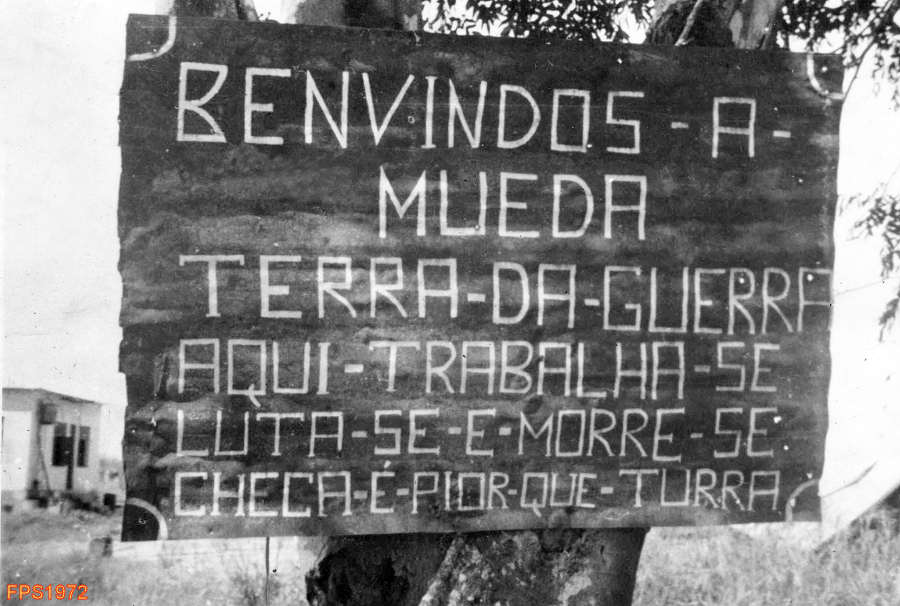 BENVINDOS - A -
MUEDA
TERRA-DA-GUERRA
AQUI-TRABALHA-SE
LUTA-SE-E-MORRE-SE
CHECA-E-PIOR-QUE-TURRA
FPS1972